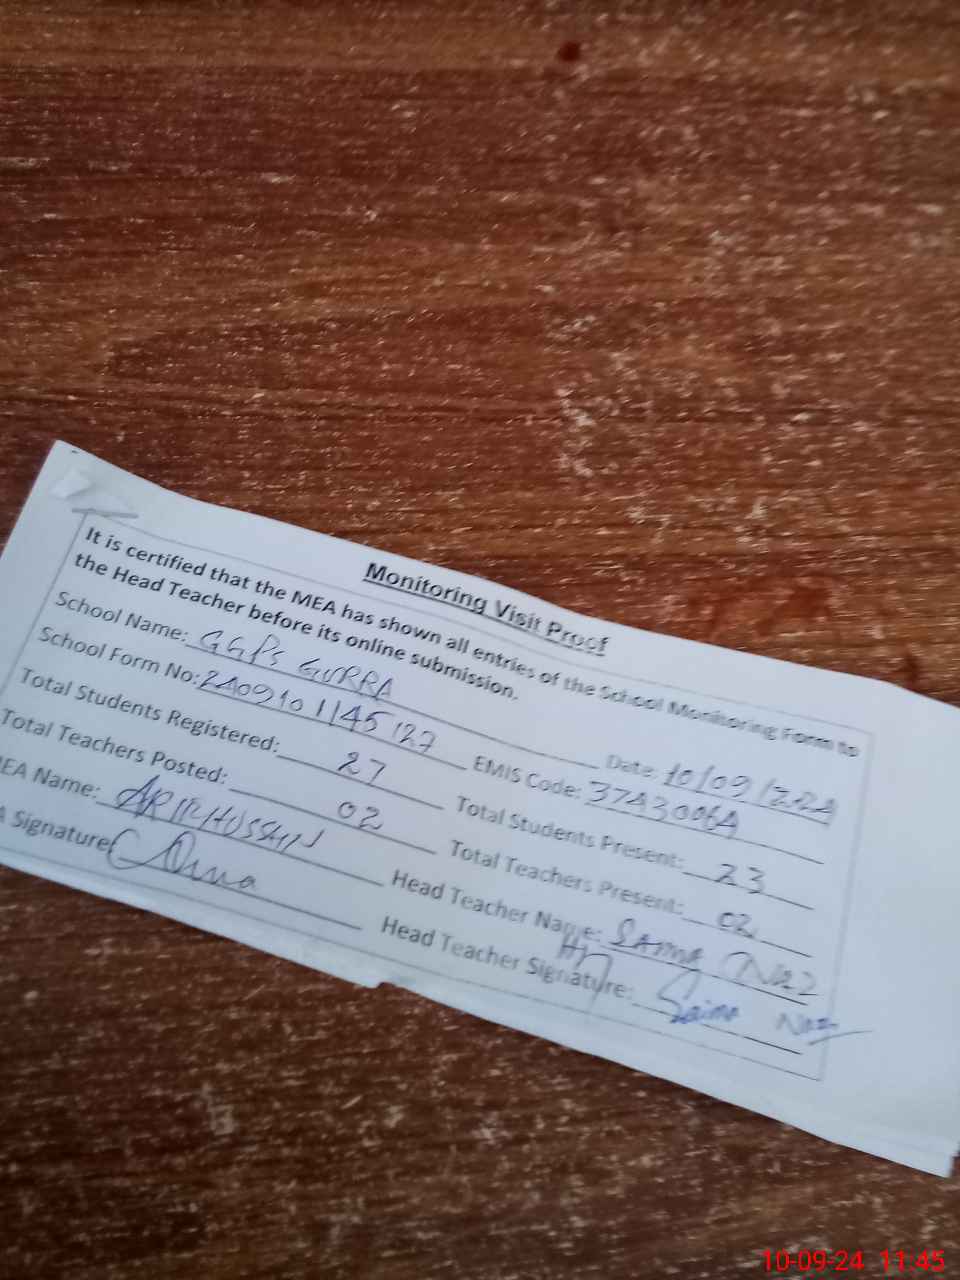 Monitoring Visit Proof
It is certified that the MEA has shown all entries of the School Monitoring Form to
the Head Teacher before its online submission.
School Name: GGPS GURRA Date: 10/09/2024
School Form No: 2409101145127 EMIS Code: 37430064
Total Students Registered: 27 Total Students Present: 23
Total Teachers Posted: 02 Total Teachers Present: 02
MEA Name: Head Teacher Name: Saima Naz
A Signature Head Teacher Signature: Saima Naz
10-09-24 11:45